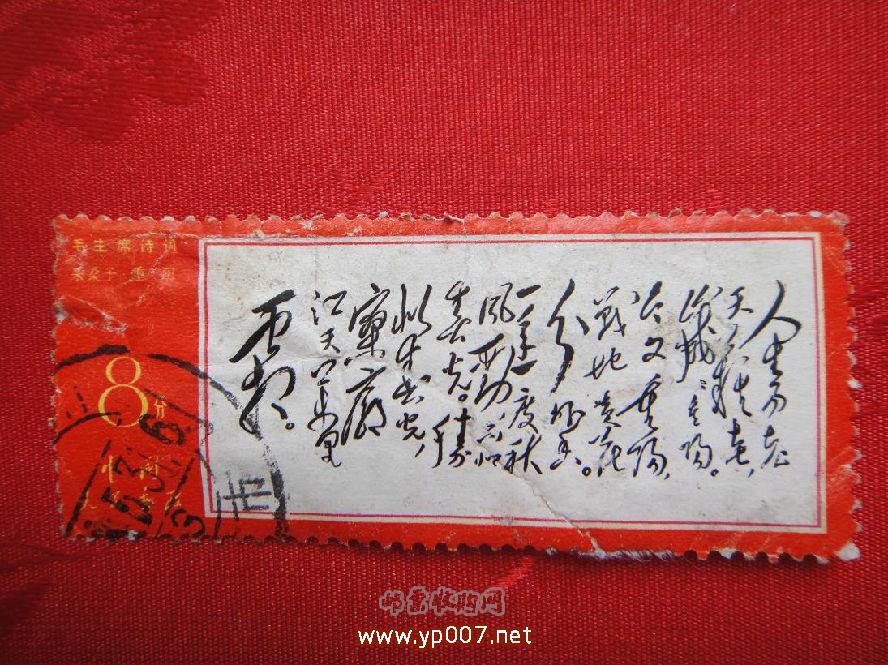 毛主席诗词
采桑子 重阳
8分
中国
人民邮政
人生易老
天難老,
歲歲重陽。
今又重陽,
戰地黄花
分外香。
一年一度秋
風勁,不似
春光。勝
似春光,
寥廓
江天萬里
霜。
市
邮票收购网
www.yp007.net